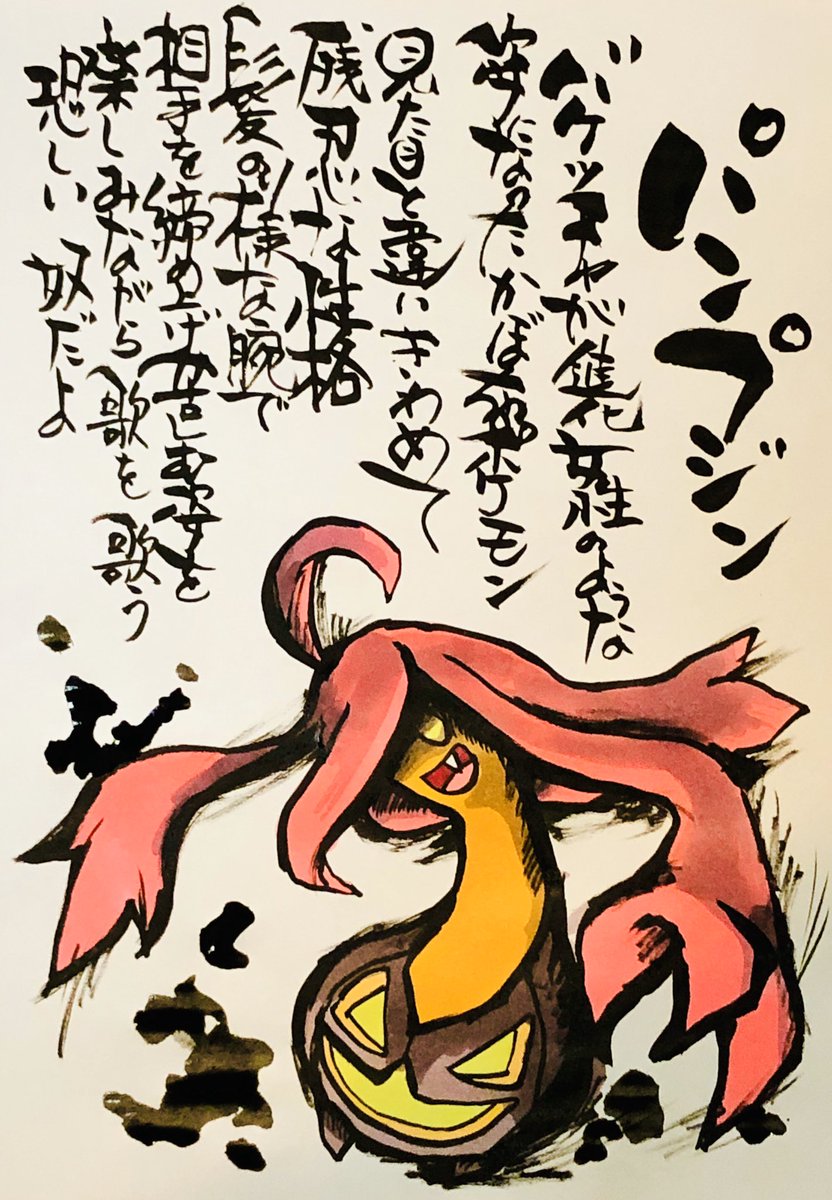 パンプジン
バケッチャが進化女性のような
姿になったかぼちゃポケモン
見た目と違いきわめて
残忍な性格
髪の様な腕で
相手を締め上げ苦しむ姿を
楽しみながら歌を歌う
恐しい奴だよ